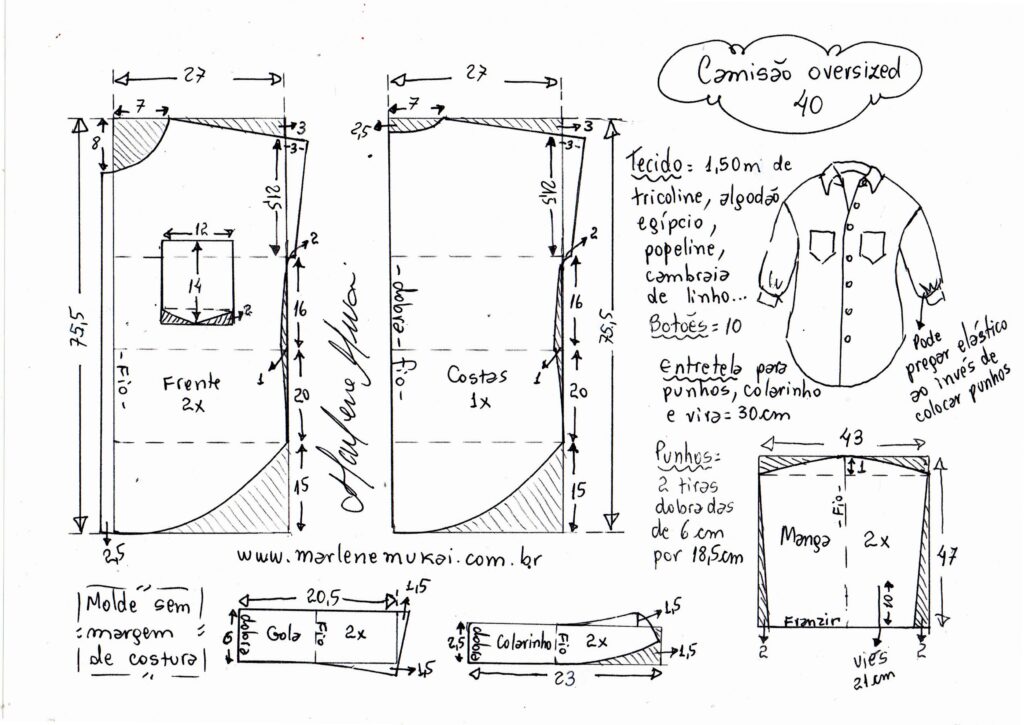 Camisão oversized
40
27
7
8
3
3
21,5
12
14
2
2
16
75,5
Fio
Frente
2x
1
20
15
2,5
27
7
2,5
3
3
21,5
2
dobra - fio -
16
75,5
Costas
1x
1
20
15
Marlene Mukai
Tecido = 1,50m de
tricoline, algodão
egípcio,
popeline,
cambraia
de linho...
Botões = 10
Entretela para
punhos, colarinho
e vira = 30cm
Pode
pregar elástico
ao invés de
colocar punhos
Punhos =
2 tiras
dobradas
de 6cm
por 18,5cm
43
1
Fio
Manga 2x
47
10
Franzir
2
2
viés
21cm
www.marlenemukai.com.br
Molde sem
margem
de costura
20,5
1,5
6
dobra
Gola
Fio
2x
1,5
1,5
2,5
dobra
Colarinho
Fio
2x
1,5
23